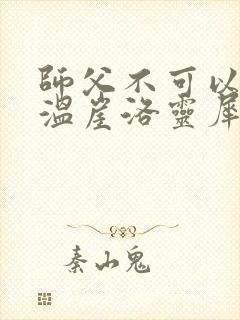 師父不可以
溫崖洛靈犀
秦山鬼